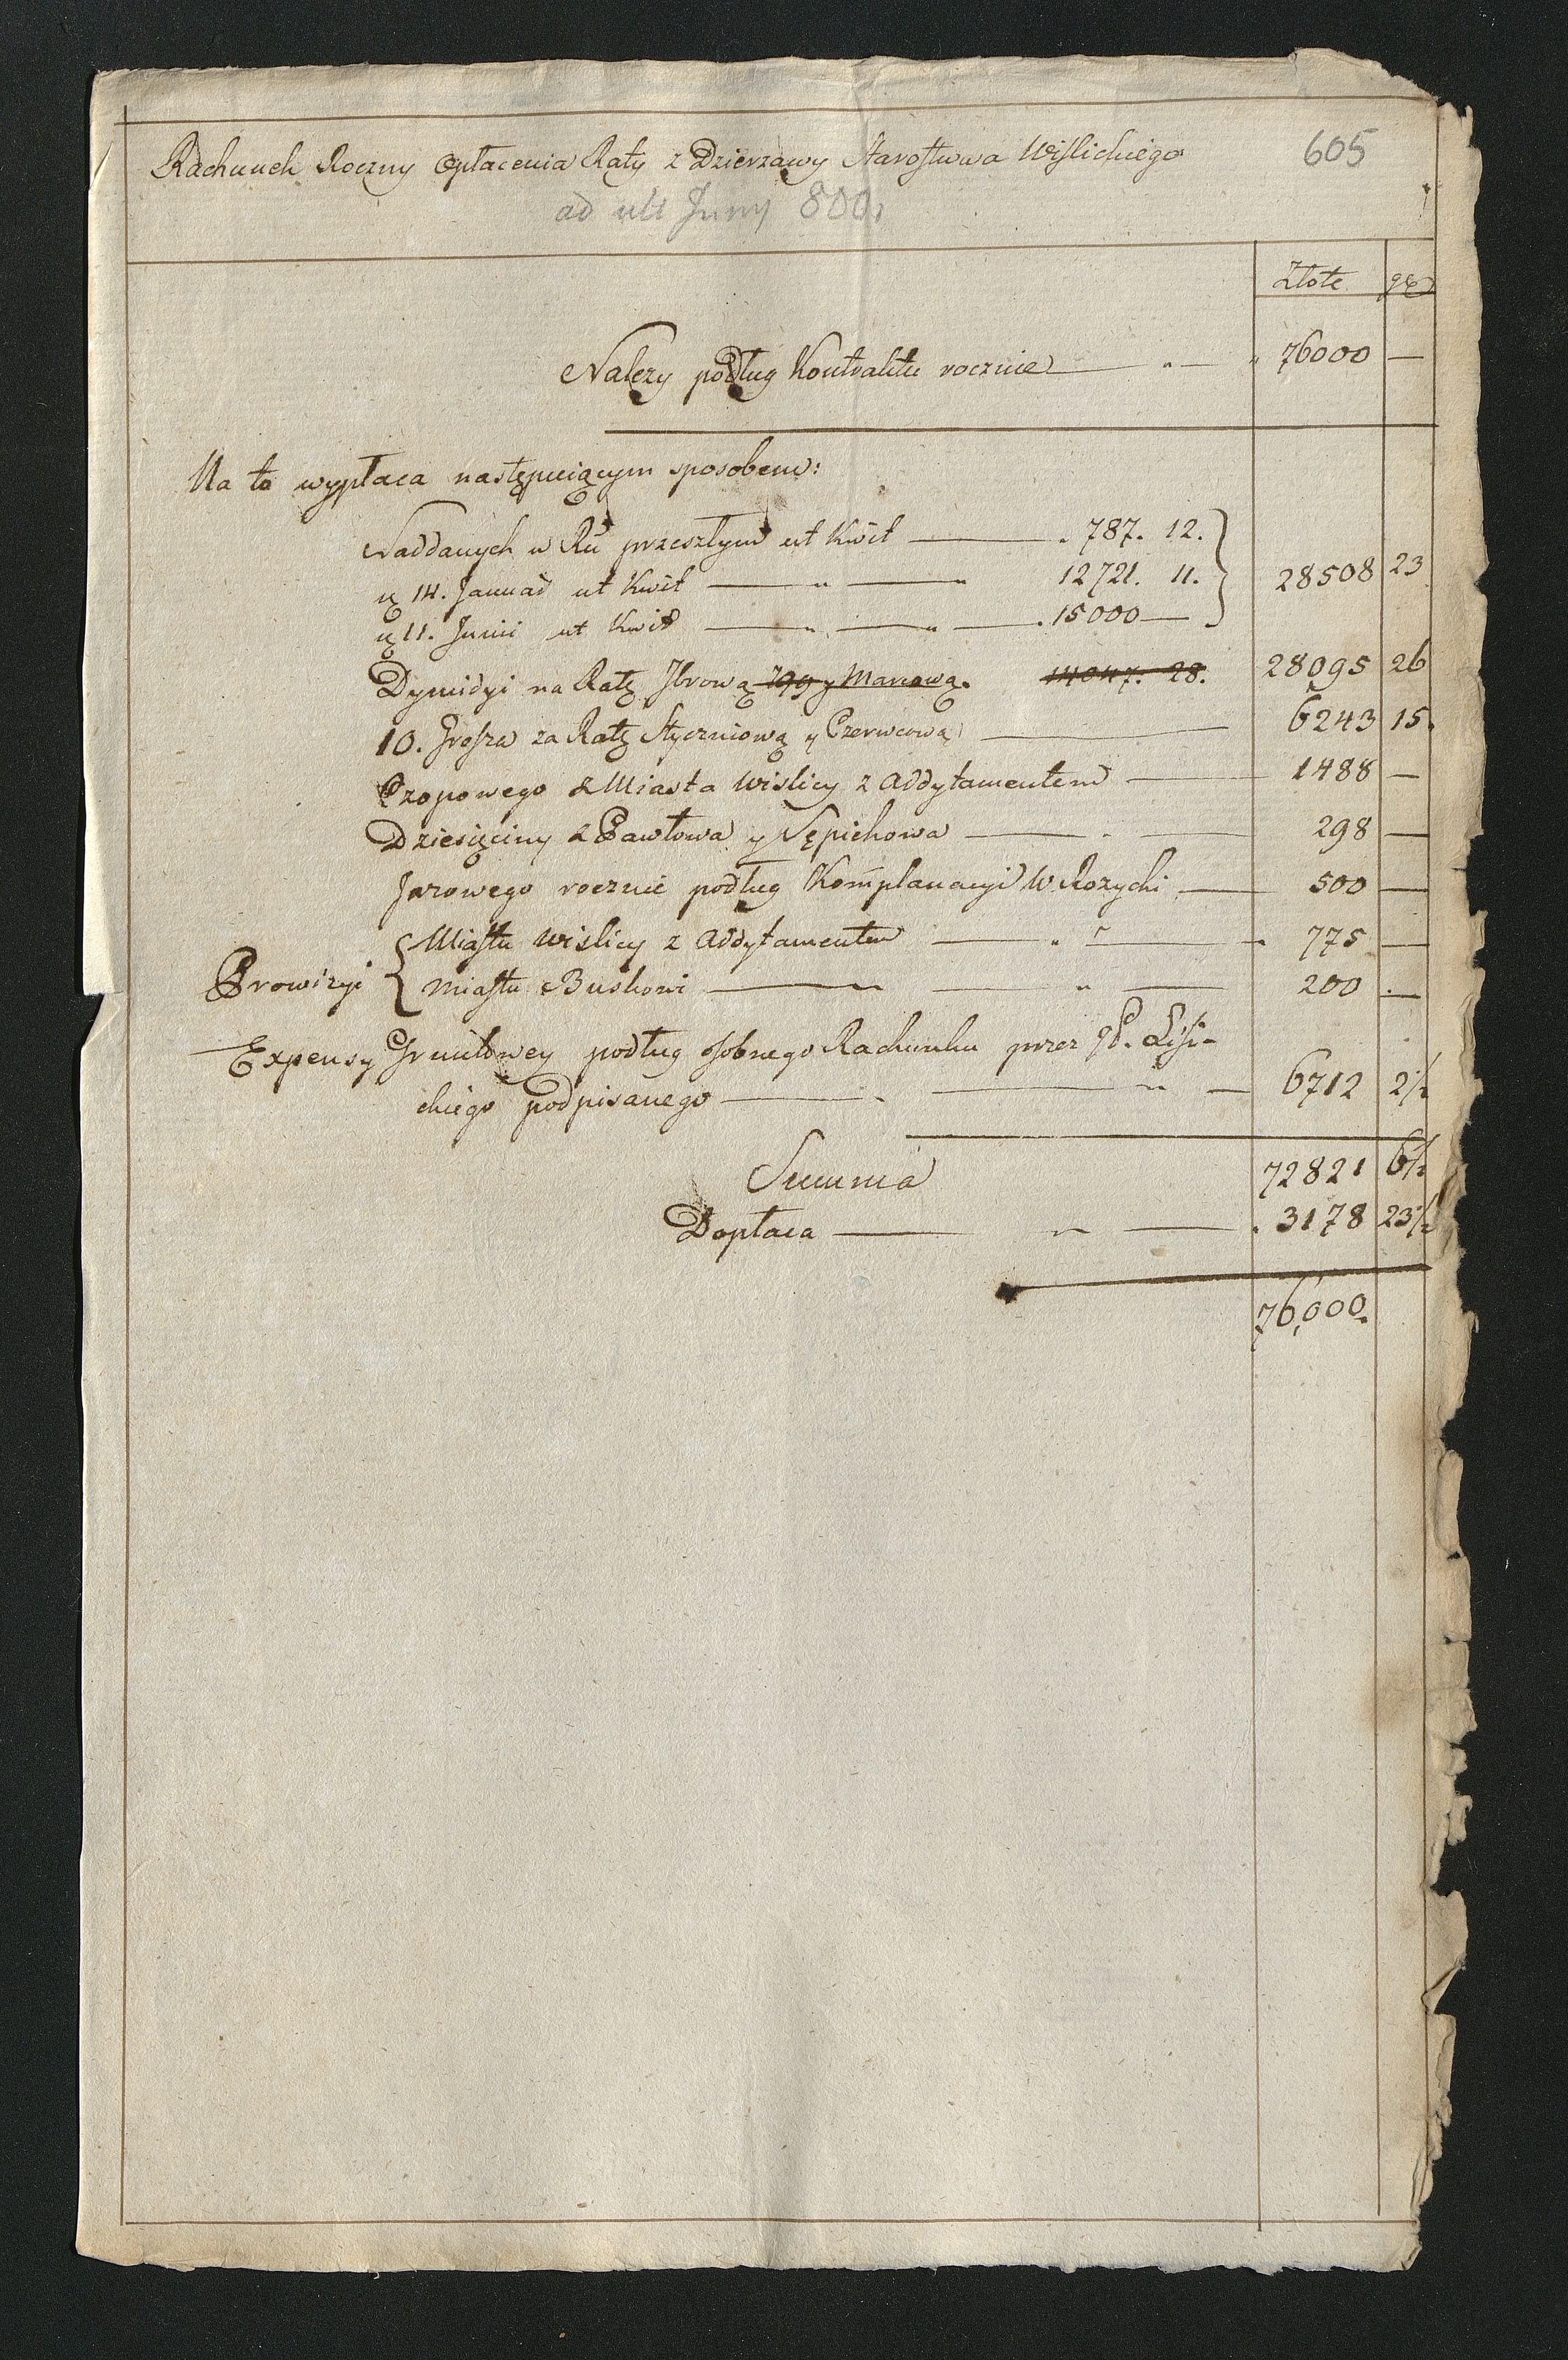 Rachunek Roczny opłacenia Raty z Dzierzawy Starostwa Wislickiego
605
ad ult Juny 800,
Złote gr
Nalezy podług Kontraktu rocznie 76000 —
Na to wypłaca następuiącym sposobem:
Naddanych w Ru przeszłym ut Kwit 787. 12.
14. Januar ut Kwit 12721. 11. 28508 23
11. Junii ut Kwit 15000 —
Dymidyi na Ratę 7brową 799 y Marcową. 14047. 28. 28095 26
10. Grosza za Ratę Styczniową y Czerwcową 6243 15.
Czopowego z Miasta Wislicy z Addytamentem 1488 —
Dziesięciny z Pawłowa y Sępichowa 298 —
Jarowego rocznie podług Komplanacyi W. Rozycki 500 —
Miastu Wislicy z Addytamentem 775 —
Prowizyi
Miastu Buskowi 200 —
Expensy Gruntowey podług osobnego Rachunku przez Lisi-
ckiego podpisanego 6712 2½
Summa 72821 6½
Dopłaca 3178 23½
76,000.